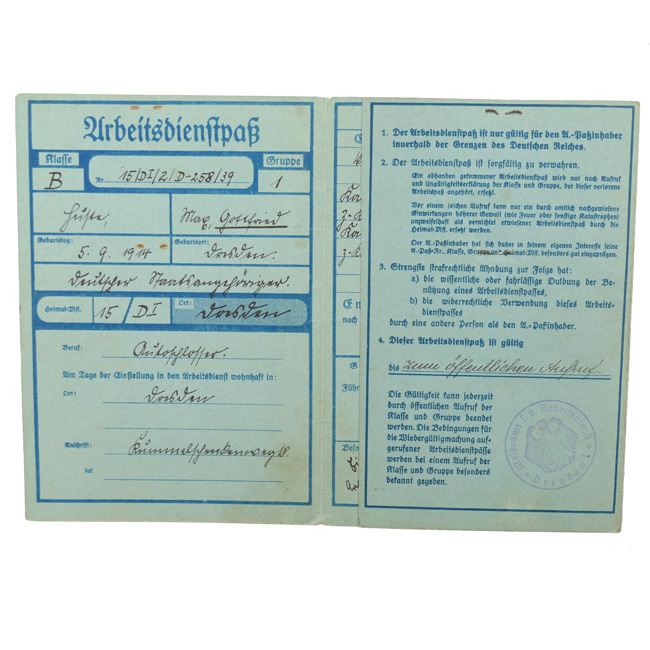 Arbeitsdienstpaß
Klasse
B
Nr. 15/DI/2/D-258/39
Gruppe
1
Huste,
Max, Gottfried
Geburtstag:
5. 9. 1914
Geburtsort:
Dresden.
Deutscher Staatsangehöriger.
Heimat-Mst. 15 / DI Ort: Dresden
Beruf: Autoschlosser.
Am Tage der Einstellung in den Arbeitsdienst wohnhaft in:
Ort: Dresden
Anschrift: Kümmelschenkenweg
bei
nach
Führ
1. Der Arbeitsdienstpaß ist nur gültig für den A.-Paßinhaber
innerhalb der Grenzen des Deutschen Reiches.
2. Der Arbeitsdienstpaß ist sorgfältig zu verwahren.
Ein abhanden gekommener Arbeitsdienstpaß wird nur nach Aufruf
und Ungültigkeitserklärung der Klasse und Gruppe, der dieser verlorene
Arbeitspaß angehört, ersetzt.
Vor einem solchen Aufruf kann nur ein durch amtlich nachgewiesene
Einwirkungen höherer Gewalt (wie Feuer oder sonstige Katastrophen)
unzweifelhaft als vernichtet erwiesener Arbeitsdienstpaß durch die
Heimat-Mst. ersetzt werden.
Der A.-Paßinhaber hat sich daher in seinem eigenen Interesse seine
A.-Paß-Nr., Klasse, Gruppe und Heimat-Mst. besonders gut einzuprägen.
3. Strengste strafrechtliche Ahndung zur Folge hat:
a) die wissentliche oder fahrlässige Duldung der Be-
nützung eines Arbeitsdienstpasses,
b) die widerrechtliche Verwendung dieses Arbeits-
dienstpasses
durch eine andere Person als den A.-Paßinhaber.
4. Dieser Arbeitsdienstpaß ist gültig
bis zum öffentlichen Aufruf.
Die Gültigkeit kann jederzeit
durch öffentlichen Aufruf der
Klasse und Gruppe beendet
werden. Die Bedingungen für
die Wiedergültigmachung auf-
gerufener Arbeitsdienstpässe
werden bei einem Aufruf der
Klasse und Gruppe besonders
bekannt gegeben.
Dresden